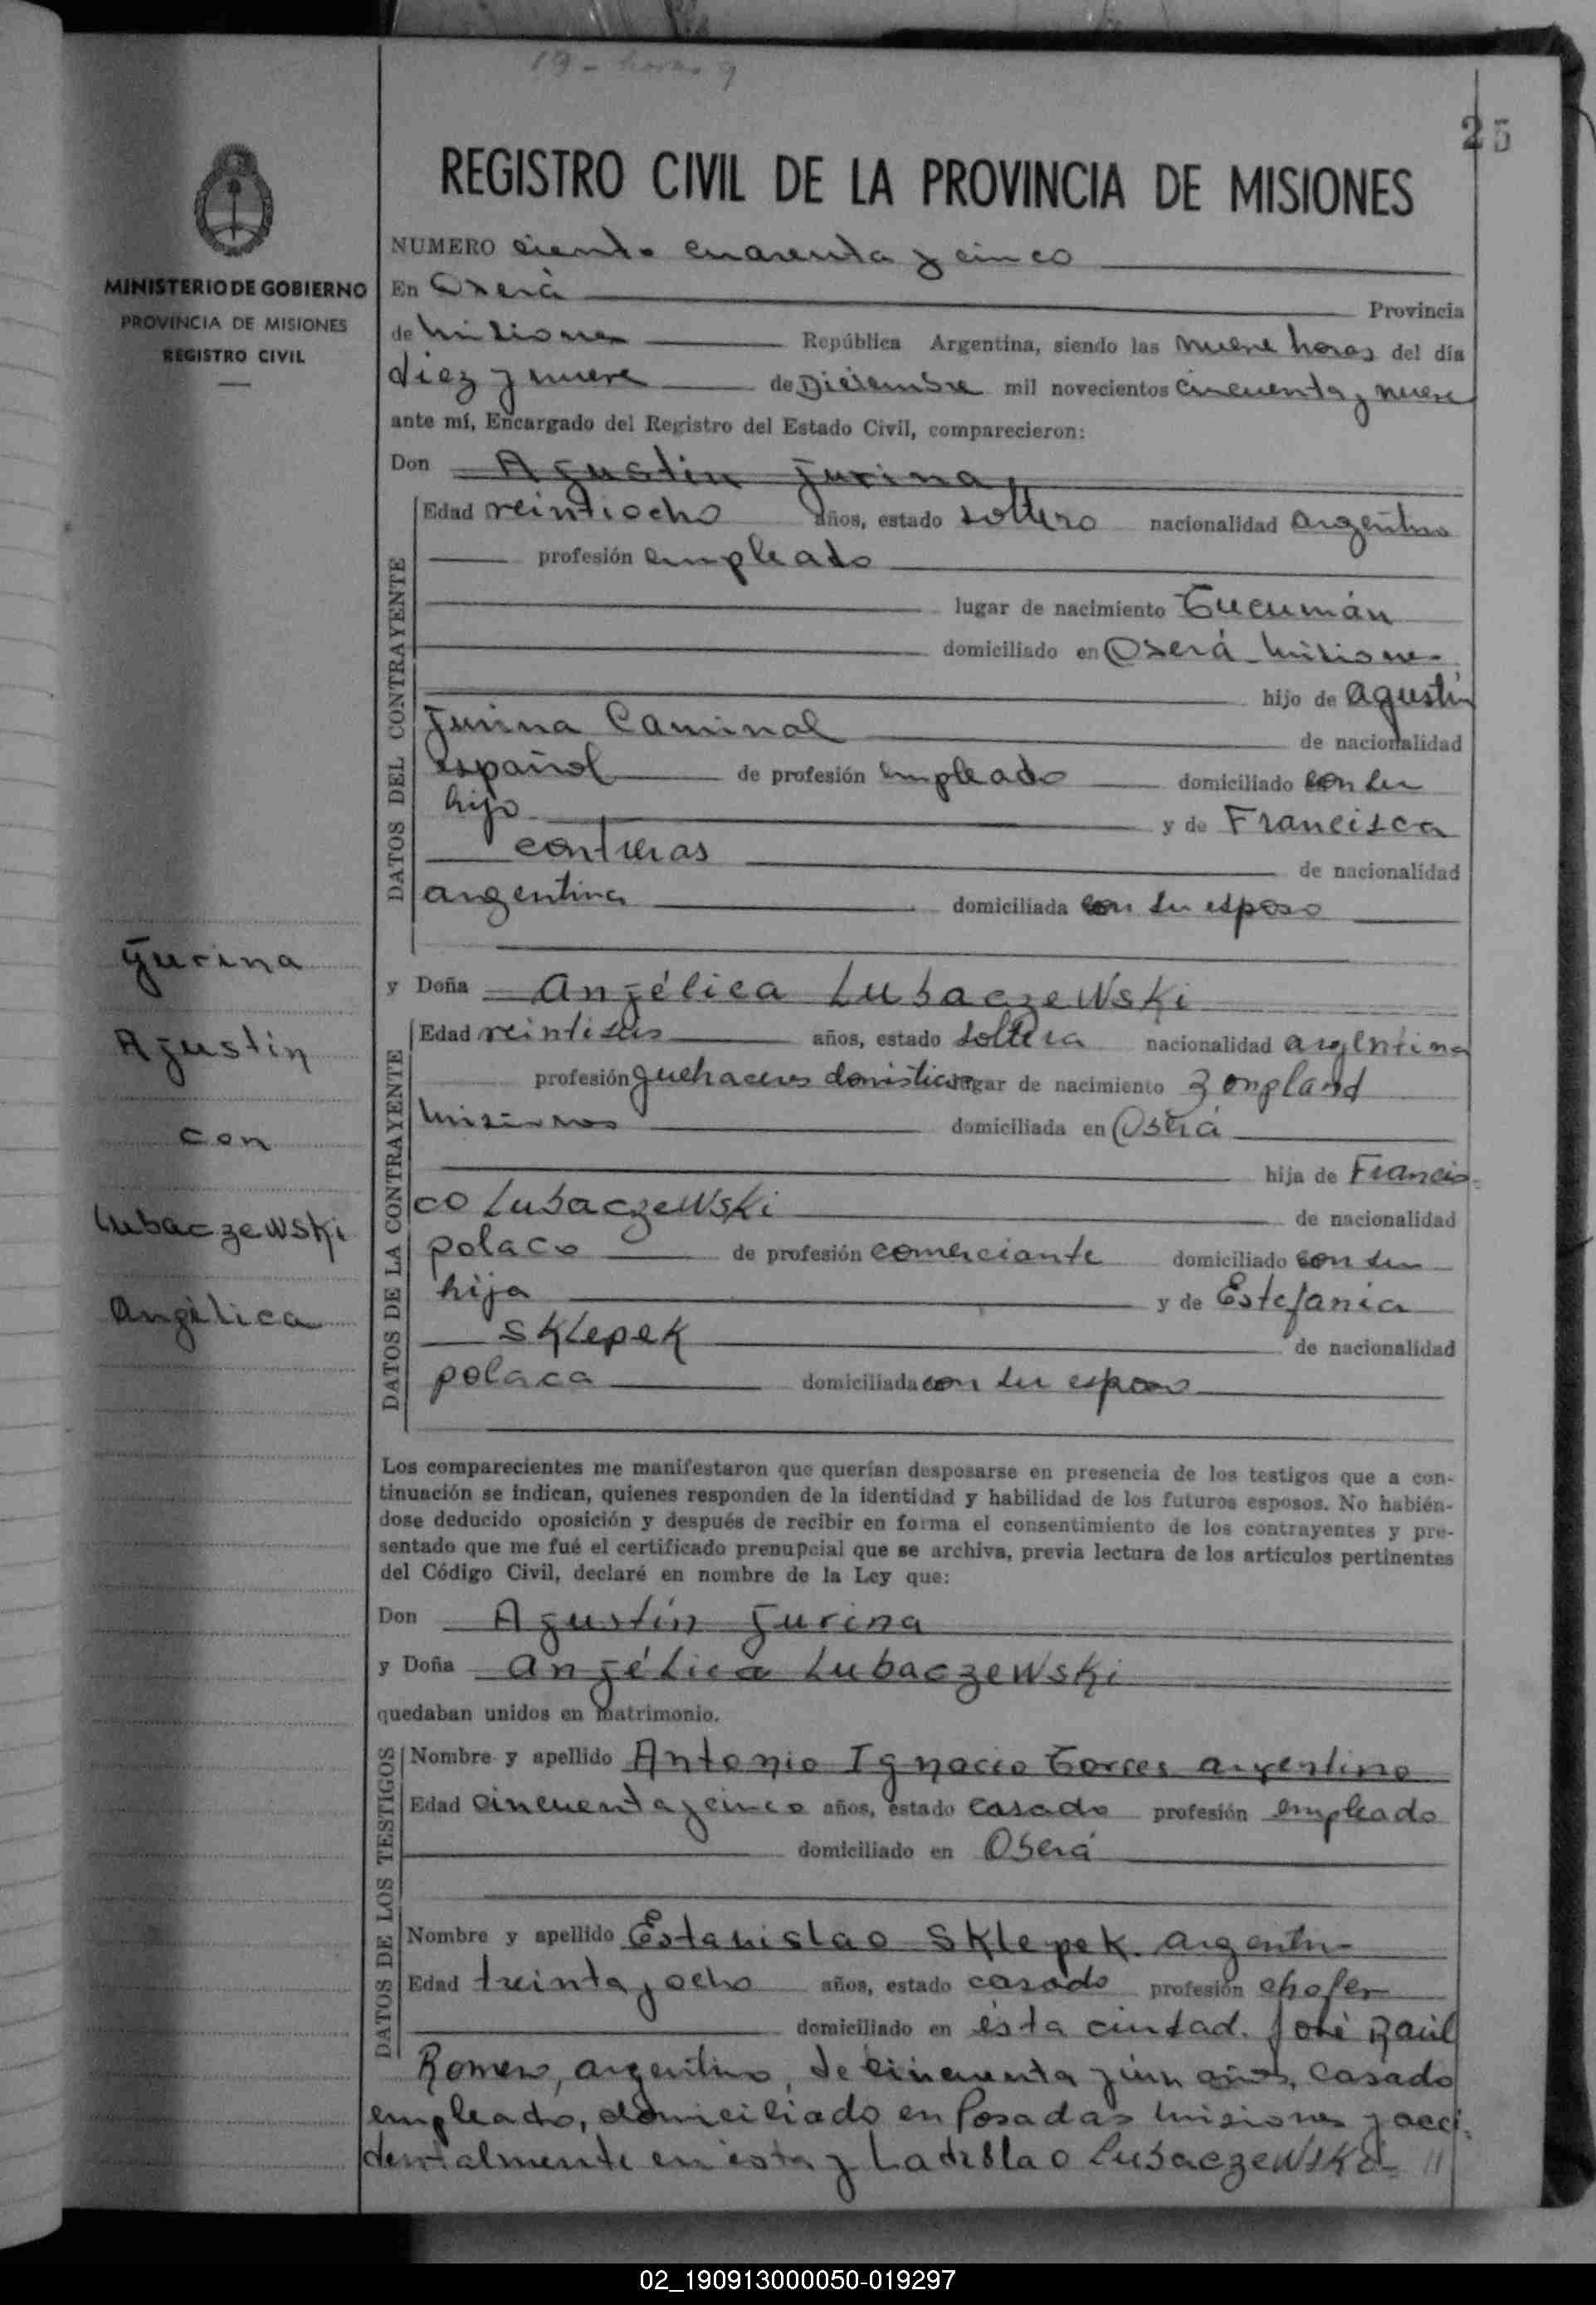 19 - horas 9
25
REGISTRO CIVIL DE LA PROVINCIA DE MISIONES
MINISTERIO DE GOBIERNO
PROVINCIA DE MISIONES
REGISTRO CIVIL
NUMERO ciento cuarenta y cinco
En Oberá Provincia
de Misiones República Argentina, siendo las nueve horas del día
diez y nueve de Diciembre mil novecientos cincuenta y nueve
ante mí, Encargado del Registro del Estado Civil, comparecieron:
Don Agustin Jurina
DATOS DEL CONTRAYENTE
Edad veintiocho años, estado soltero nacionalidad argentino
profesión empleado
lugar de nacimiento Tucumán
domiciliado en Oberá Misiones
hijo de Agustín
Jurina Caminal de nacionalidad
español de profesión empleado domiciliado con su
hijo y de Francisca
contreras de nacionalidad
argentina domiciliada con su esposo
Jurina
Agustin
con
Lubaczewski
Angélica
y Doña Angélica Lubaczewski
DATOS DE LA CONTRAYENTE
Edad veintiseis años, estado soltera nacionalidad argentina
profesión quehaceres domésticos lugar de nacimiento
Misiones domiciliada en Oberá
hija de Francis-
co Lubaczewski de nacionalidad
polaco de profesión comerciante domiciliado con su
hija y de Estefania
Sklepek de nacionalidad
polaca domiciliada con su esposo
Los comparecientes me manifestaron que querían desposarse en presencia de los testigos que a con-
tinuación se indican, quienes responden de la identidad y habilidad de los futuros esposos. No habién-
dose deducido oposición y después de recibir en forma el consentimiento de los contrayentes y pre-
sentado que me fué el certificado prenupcial que se archiva, previa lectura de los artículos pertinentes
del Código Civil, declaré en nombre de la Ley que:
Don Agustín Jurina
y Doña Angélica Lubaczewski
quedaban unidos en matrimonio.
DATOS DE LOS TESTIGOS
Nombre y apellido Antonio Ignacio Torres argentino
Edad cincuenta y cinco años, estado casado profesión empleado
domiciliado en Oberá
Nombre y apellido Estanislao Sklepek argentino
Edad treinta y ocho años, estado casado profesión chofer
domiciliado en ésta ciudad. José Raúl
Romero, argentino, de cincuenta y un años, casado
empleado, domiciliado en Posadas Misiones y acci-
dentalmente en esta y Ladislao Lubaczewski- //
02_190913000050-019297